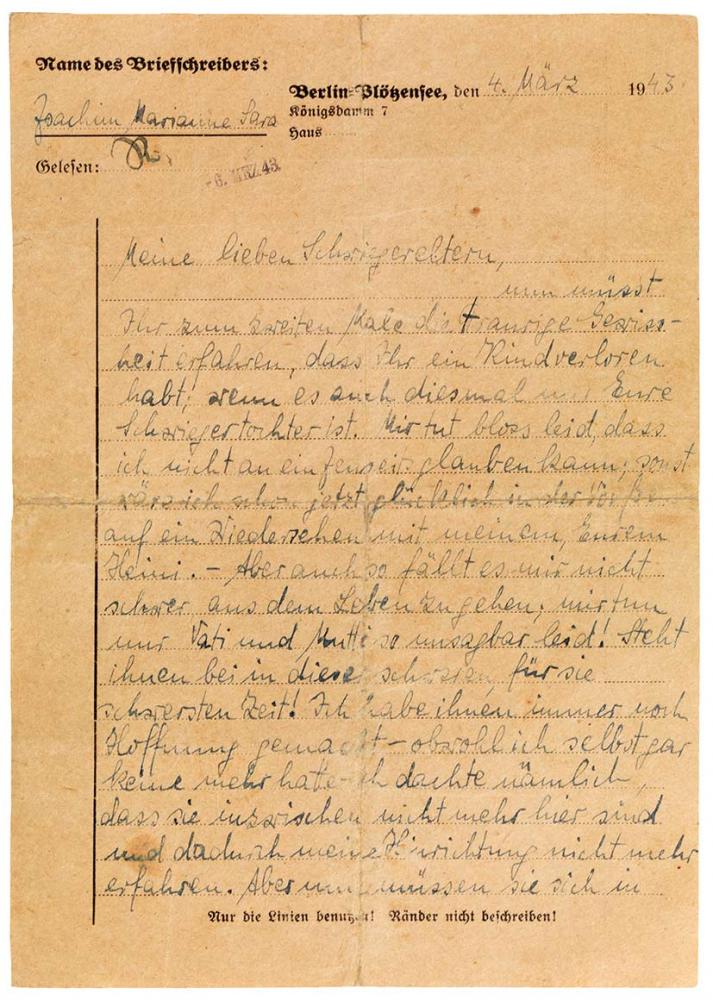 Name des Briefschreibers:
Berlin-Plötzensee, den 4. März 1943
Joachim, Marianne Sara
Königsdamm 7
Haus
Gelesen: R.
-6. MRZ 43
Meine lieben Schwiegereltern,
nun müsst
Ihr zum zweiten Male die traurige Gewiss-
heit erfahren, dass Ihr ein Kind verloren
habt; wenn es auch diesmal nur Eure
Schwiegertochter ist. Mir tut bloss leid, dass
ich nicht an ein Jenseits glauben kann; sonst
wäre ich schon jetzt glücklich in der
auf ein Wiedersehen mit meinem, Eurem
Heini. – Aber auch so fällt es mir nicht
schwer aus dem Leben zu gehen; mir tun
nur Vati und Mutti so unsagbar leid! Steht
ihnen bei in dieser schweren, für sie
schwersten Zeit! Ich habe ihnen immer noch
Hoffnung gemacht – obwohl ich selbst gar
keine mehr hatte – ich dachte nämlich,
dass sie inzwischen nicht mehr hier sind
und dadurch meine Hinrichtung nicht mehr
erfahren. Aber nun müssen sie sich in
Nur die Linien benutzen! Ränder nicht beschreiben!